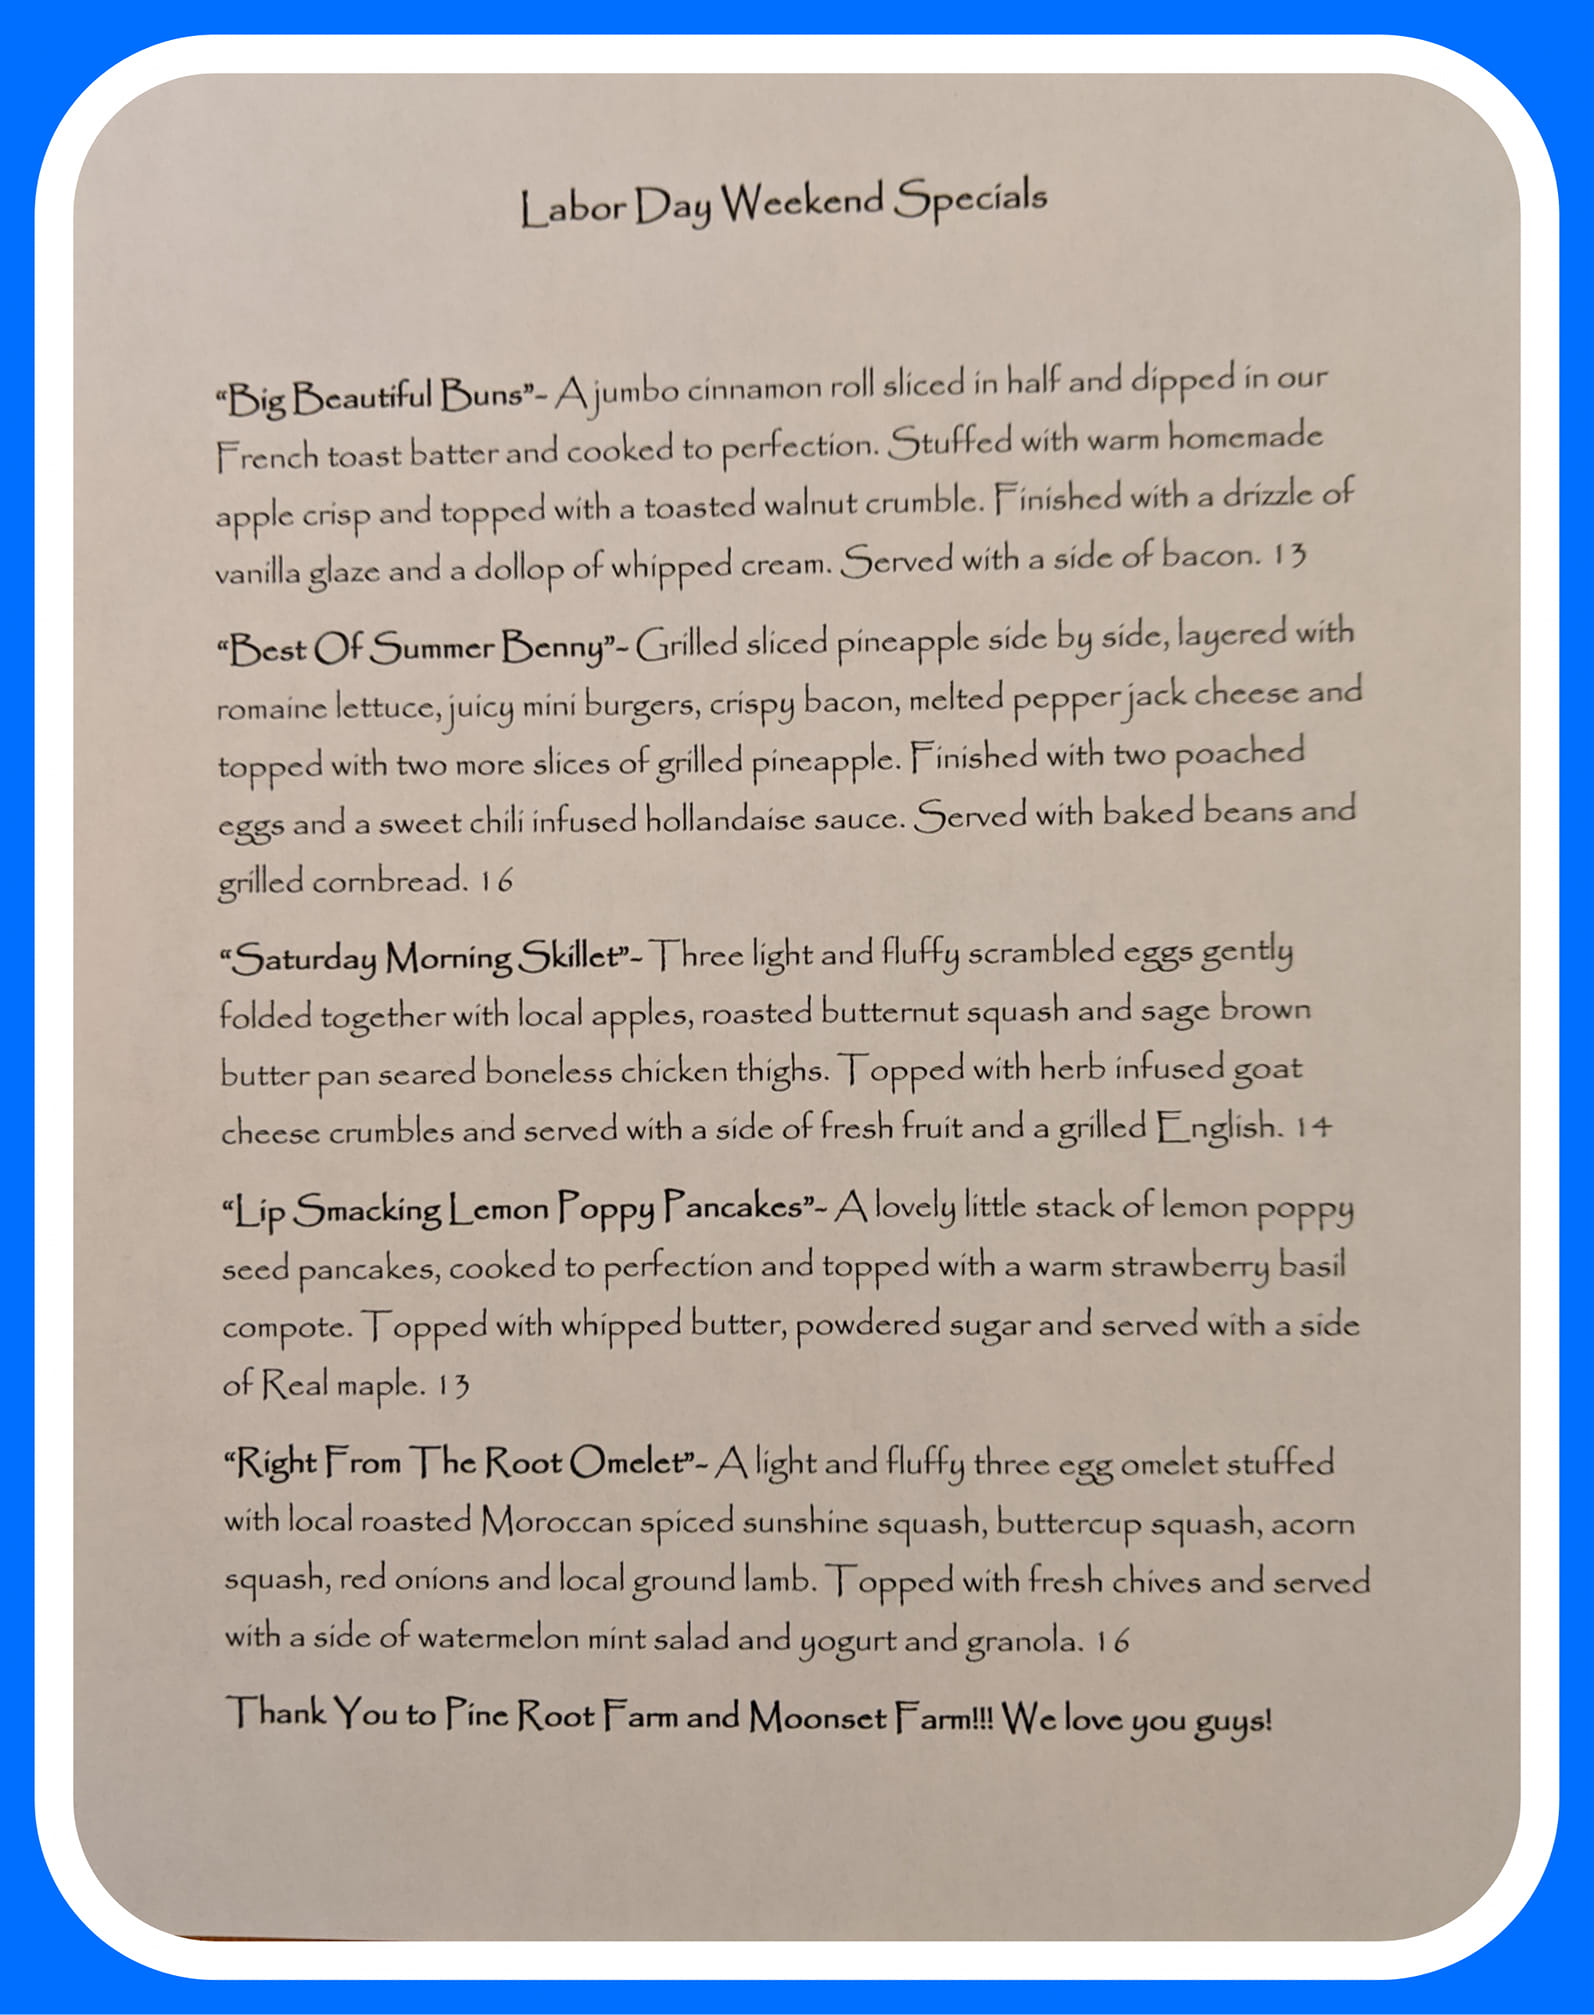 Labor Day Weekend Specials
“Big Beautiful Buns”- A jumbo cinnamon roll sliced in half and dipped in our
French toast batter and cooked to perfection. Stuffed with warm homemade
apple crisp and topped with a toasted walnut crumble. Finished with a drizzle of
vanilla glaze and a dollop of whipped cream. Served with a side of bacon. 13
“Best Of Summer Benny”- Grilled sliced pineapple side by side, layered with
romaine lettuce, juicy mini burgers, crispy bacon, melted pepper jack cheese and
topped with two more slices of grilled pineapple. Finished with two poached
eggs and a sweet chili infused hollandaise sauce. Served with baked beans and
grilled cornbread. 16
“Saturday Morning Skillet”- Three light and fluffy scrambled eggs gently
folded together with local apples, roasted butternut squash and sage brown
butter pan seared boneless chicken thighs. Topped with herb infused goat
cheese crumbles and served with a side of fresh fruit and a grilled English. 14
“Lip Smacking Lemon Poppy Pancakes”- A lovely little stack of lemon poppy
seed pancakes, cooked to perfection and topped with a warm strawberry basil
compote. Topped with whipped butter, powdered sugar and served with a side
of Real maple. 13
“Right From The Root Omelet”- A light and fluffy three egg omelet stuffed
with local roasted Moroccan spiced sunshine squash, buttercup squash, acorn
squash, red onions and local ground lamb. Topped with fresh chives and served
with a side of watermelon mint salad and yogurt and granola. 16
Thank You to Pine Root Farm and Moonset Farm!!! We love you guys!